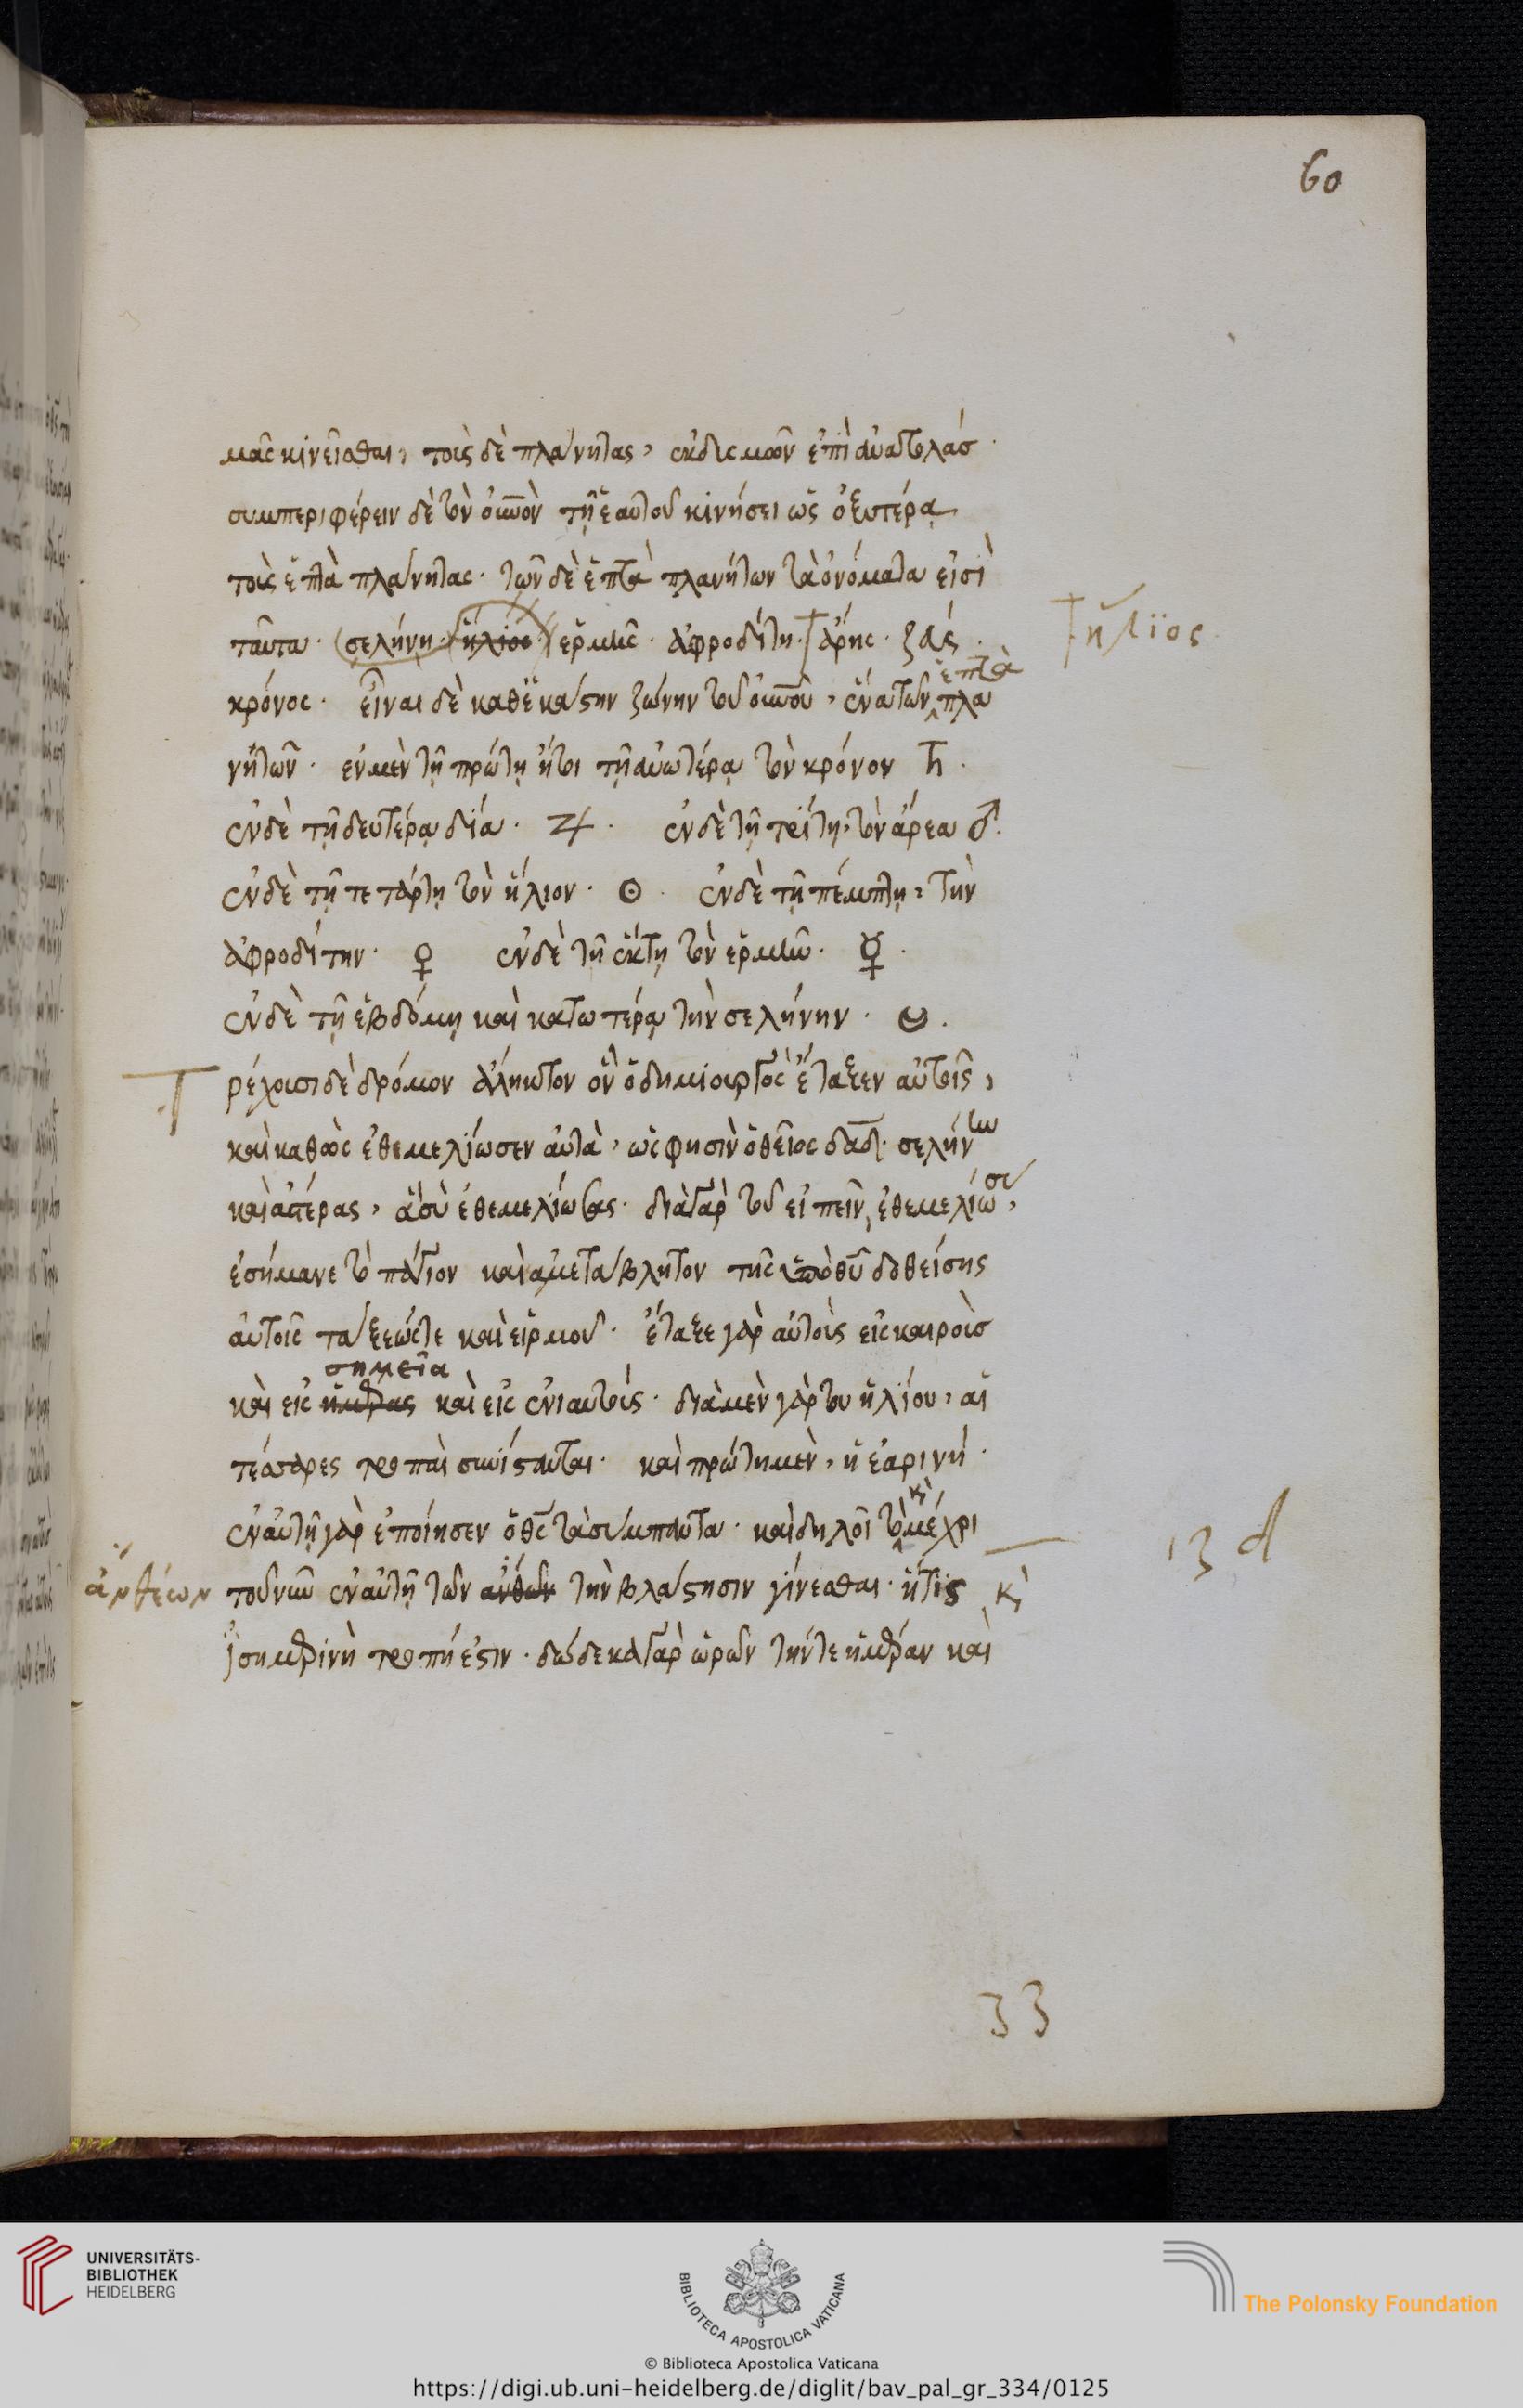 60
μὰς κινεῖσθαι, τοὺς δὲ πλάνητας, ἐκ δυσμῶν ἐπὶ ἀνατολάσ·
συμπεριφέρειν δὲ τὸν οὐρανὸν τῇ ἑαυτοῦ κινήσει ὡς ὀξυτέρᾳ
τοὺς ἑπτὰ πλάνητας· τῶν δὲ ἑπτὰ πλανήτων τὰ ὀνόματα εἰσὶ
ταῦτα· σελήνη· ἥλιος· ἑρμῆς· ἀφροδίτη· ἄρης· ζεύς· † ἥλϊος
ἑπτὰ
κρόνος· εἶναι δὲ καθ' ἑκάστην ζώνην τοῦ οὐρανοῦ, ἕνα τῶν πλα
νήτων· ἐν μὲν τῇ πρώτῃ ἤτοι τῇ ἀνωτέρᾳ τὸν κρόνον ♄·
ἐν δὲ τῇ δευτέρᾳ δία· ♃· ἐν δὲ τῇ τρίτῃ, τὸν ἄρεα ♂·
ἐν δὲ τῇ τετάρτῃ τὸν ἥλιον· ☉· ἐν δὲ τῇ πέμπτῃ, τὴν
ἀφροδίτην· ♀ ἐν δὲ τῇ ἕκτῃ τὸν ἑρμῆν· ☿·
ἐν δὲ τῇ ἑβδόμῃ καὶ κατωτέρᾳ τὴν σελήνην· ☽·
Τρέχουσι δὲ δρόμον ἄληκτον ὃν ὁ δημιουργὸς ἔταξεν αὐτοῖς,
καὶ καθὼς ἐθεμελίωσεν αὐτὰ, ὡς φησὶν ὁ θεῖος δαδ· σελήνην
καὶ ἀστέρας, ἃ σὺ ἐθεμελίωσας· διὰ γὰρ τοῦ εἰπεῖν, ἐθεμελίωσε,
ἐσήμανε τὸ πάγιον καὶ ἀμετάβλητον τῆς ὑπὸ θυ δοθείσης
αὐτοῖς τάξεώς τε καὶ εἱρμοῦ· ἔταξε γὰρ αὐτοὺς εἰς καιροὺσ
σημεῖα
καὶ εἰς ἡμέρας καὶ εἰς ἐνιαυτούς· διὰ μὲν γὰρ του ἡλίου, αἱ
τέσσαρες τροπαὶ συνίστανται· καὶ πρώτη μὲν, ἡ ἐαρινή·
κὶ
ἐν αὐτῇ γὰρ ἐποίησεν ὁ θς τὰ σύμπαντα· καὶ δηλοῖ τὸ μέχρι 13 d
ἀνθέων τοῦ νῦν ἐν αὐτῇ τῶν ἀνθῶν τὴν βλάστησιν γίνεσθαι· ἥτις κὶ
ἰσημερινὴ τροπή ἐστιν· δώδεκα γὰρ ὡρῶν τήν τε ἡμέραν καὶ
33
UNIVERSITÄTS-
BIBLIOTHEK
HEIDELBERG
BIBLIOTECA APOSTOLICA VATICANA
The Polonsky Foundation
© Biblioteca Apostolica Vaticana
https://digi.ub.uni-heidelberg.de/diglit/bav_pal_gr_334/0125